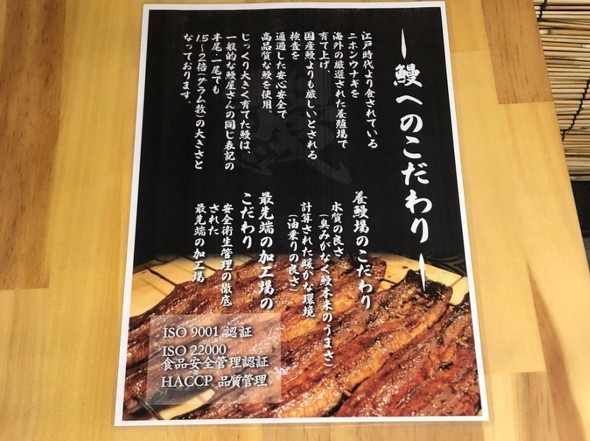 鰻へのこだわり
江戸時代より食されている
ニホンウナギを
海外の厳選された養殖場で
育て上げ、
国産鰻よりも厳しいとされる
検査を
通過した安心安全で
高品質な鰻を使用
じっくり大きく育てた鰻は、
一般的な鰻屋さんの同じ表記の
半尾・一尾でも
1.5〜2倍(グラム数)の大きさと
なっております。
養鰻場のこだわり
水質の良さ
(臭みがなく鰻本来のうまさ)
計算された暖かな環境
(油乗りの良さ)
最先端の加工場の
こだわり
安全衛生管理の徹底
された
最先端の加工場
ISO 9001 認証
ISO 22000
食品安全管理認証
HACCP 品質管理